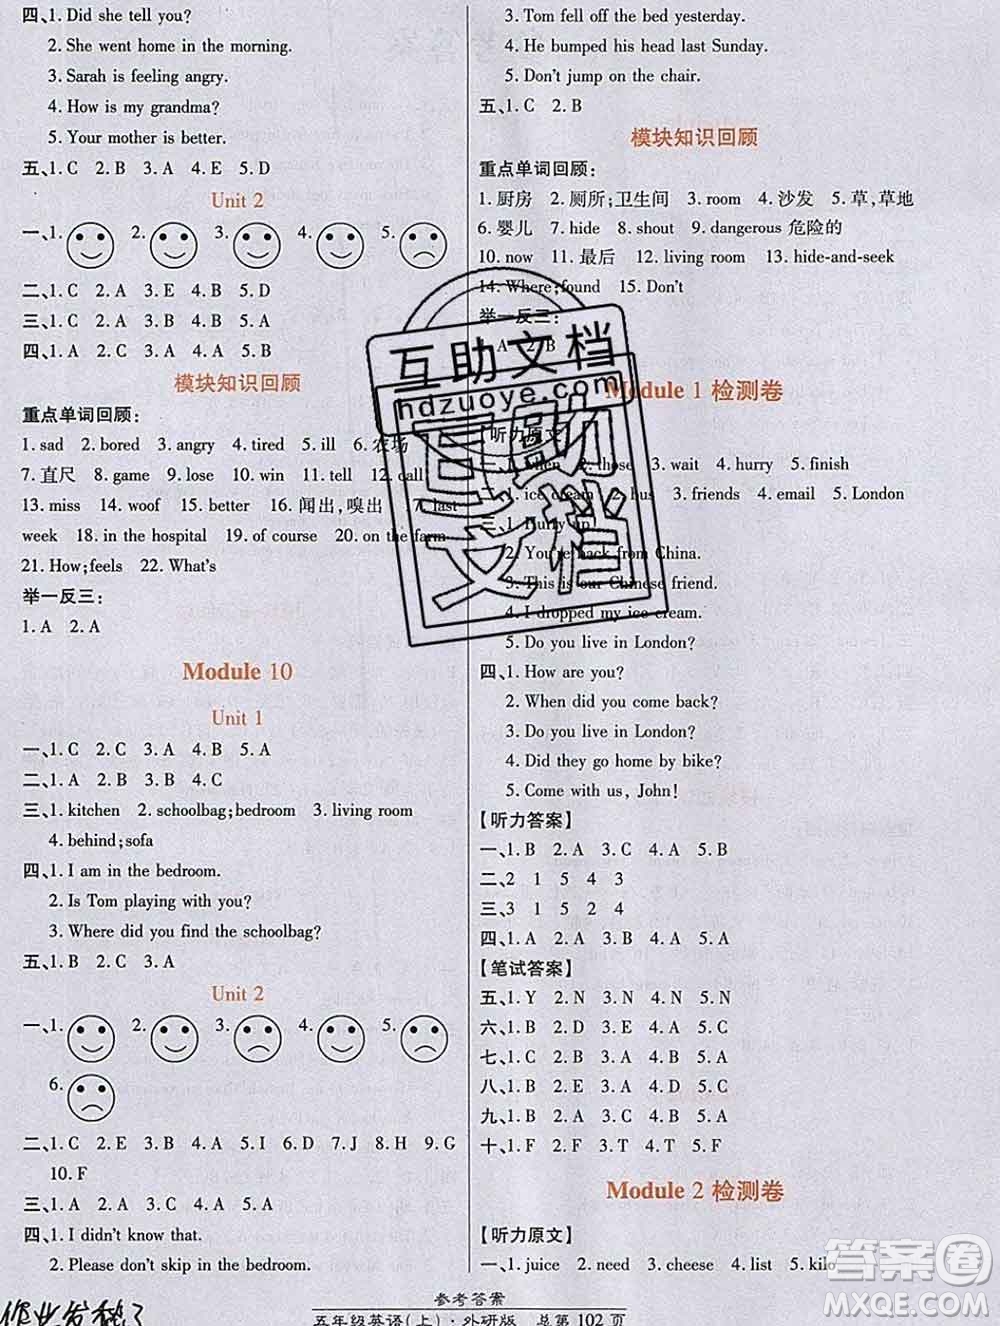 四、1. Did she tell you?
2. She went home in the morning.
3. Sarah is feeling angry.
4. How is my grandma?
5. Your mother is better.
五、1. C 2. B 3. A 4. E 5. D
Unit 2
一、1. 2. 3. 4. 5.
二、1. C 2. A 3. E 4. B 5. D
三、1. C 2. C 3. B 4. B 5. A
四、1. A 2. A 3. A 4. C 5. B
模块知识回顾
重点单词回顾：
1. sad 2. bored 3. angry 4. tired 5. ill 6. 农场
7. 直尺 8. game 9. lose 10. win 11. tell 12. call
13. miss 14. woof 15. better 16. 闻出，嗅出 17. last
week 18. in the hospital 19. of course 20. on the farm
21. How;feels 22. What's
举一反三：
1. A 2. A
Module 10
Unit 1
一、1. C 2. C 3. A 4. B 5. A
二、1. A 2. B 3. B 4. A 5. A
三、1. kitchen 2. schoolbag;bedroom 3. living room
4. behind;sofa
四、1. I am in the bedroom.
2. Is Tom playing with you?
3. Where did you find the schoolbag?
五、1. B 2. C 3. A
Unit 2
一、1. 2. 3. 4. 5.
6.
二、1. C 2. E 3. B 4. A 5. I 6. D 7. J 8. H 9. G
10. F
三、1. A 2. A 3. A 4. C 5. A
四、1. I didn't know that.
2. Please don't skip in the bedroom.
3. Tom fell off the bed yesterday.
4. He bumped his head last Sunday.
5. Don't jump on the chair.
五、1. C 2. B
模块知识回顾
重点单词回顾：
1. 厨房 2. 厕所；卫生间 3. room 4. 沙发 5. 草，草地
6. 婴儿 7. hide 8. shout 9. dangerous 危险的
10. now 11. 最后 12. living room 13. hide-and-seek
14. Where;found 15. Don't
举一反三：
1. A 2. B
Module 1 检测卷
【听力原文】
一、1. when 2. those 3. wait 4. hurry 5. finish
二、1. ice cream 2. bus 3. friends 4. email 5. London
三、1. Hurry up!
2. You're back from China.
3. This is our Chinese friend.
4. I dropped my ice cream.
5. Do you live in London?
四、1. How are you?
2. When did you come back?
3. Do you live in London?
4. Did they go home by bike?
5. Come with us, John!
【听力答案】
一、1. B 2. A 3. A 4. A 5. B
二、2 1 5 4 3
三、3 1 5 2 4
四、1. A 2. A 3. B 4. A 5. A
【笔试答案】
五、1. Y 2. N 3. N 4. N 5. N
六、1. B 2. D 3. E 4. A 5. C
七、1. C 2. B 3. C 4. B 5. A
八、1. B 2. E 3. A 4. D 5. C
九、1. B 2. C 3. B 4. A 5. A
十、1. F 2. F 3. T 4. T 5. F
Module 2 检测卷
【听力原文】
一、1. juice 2. need 3. cheese 4. list 5. kilo
参考答案
五年级英语（上）·外研版 总第 102 页
互助文档
hdzuoye.com
互助文档
答案圈
MXQE.COM